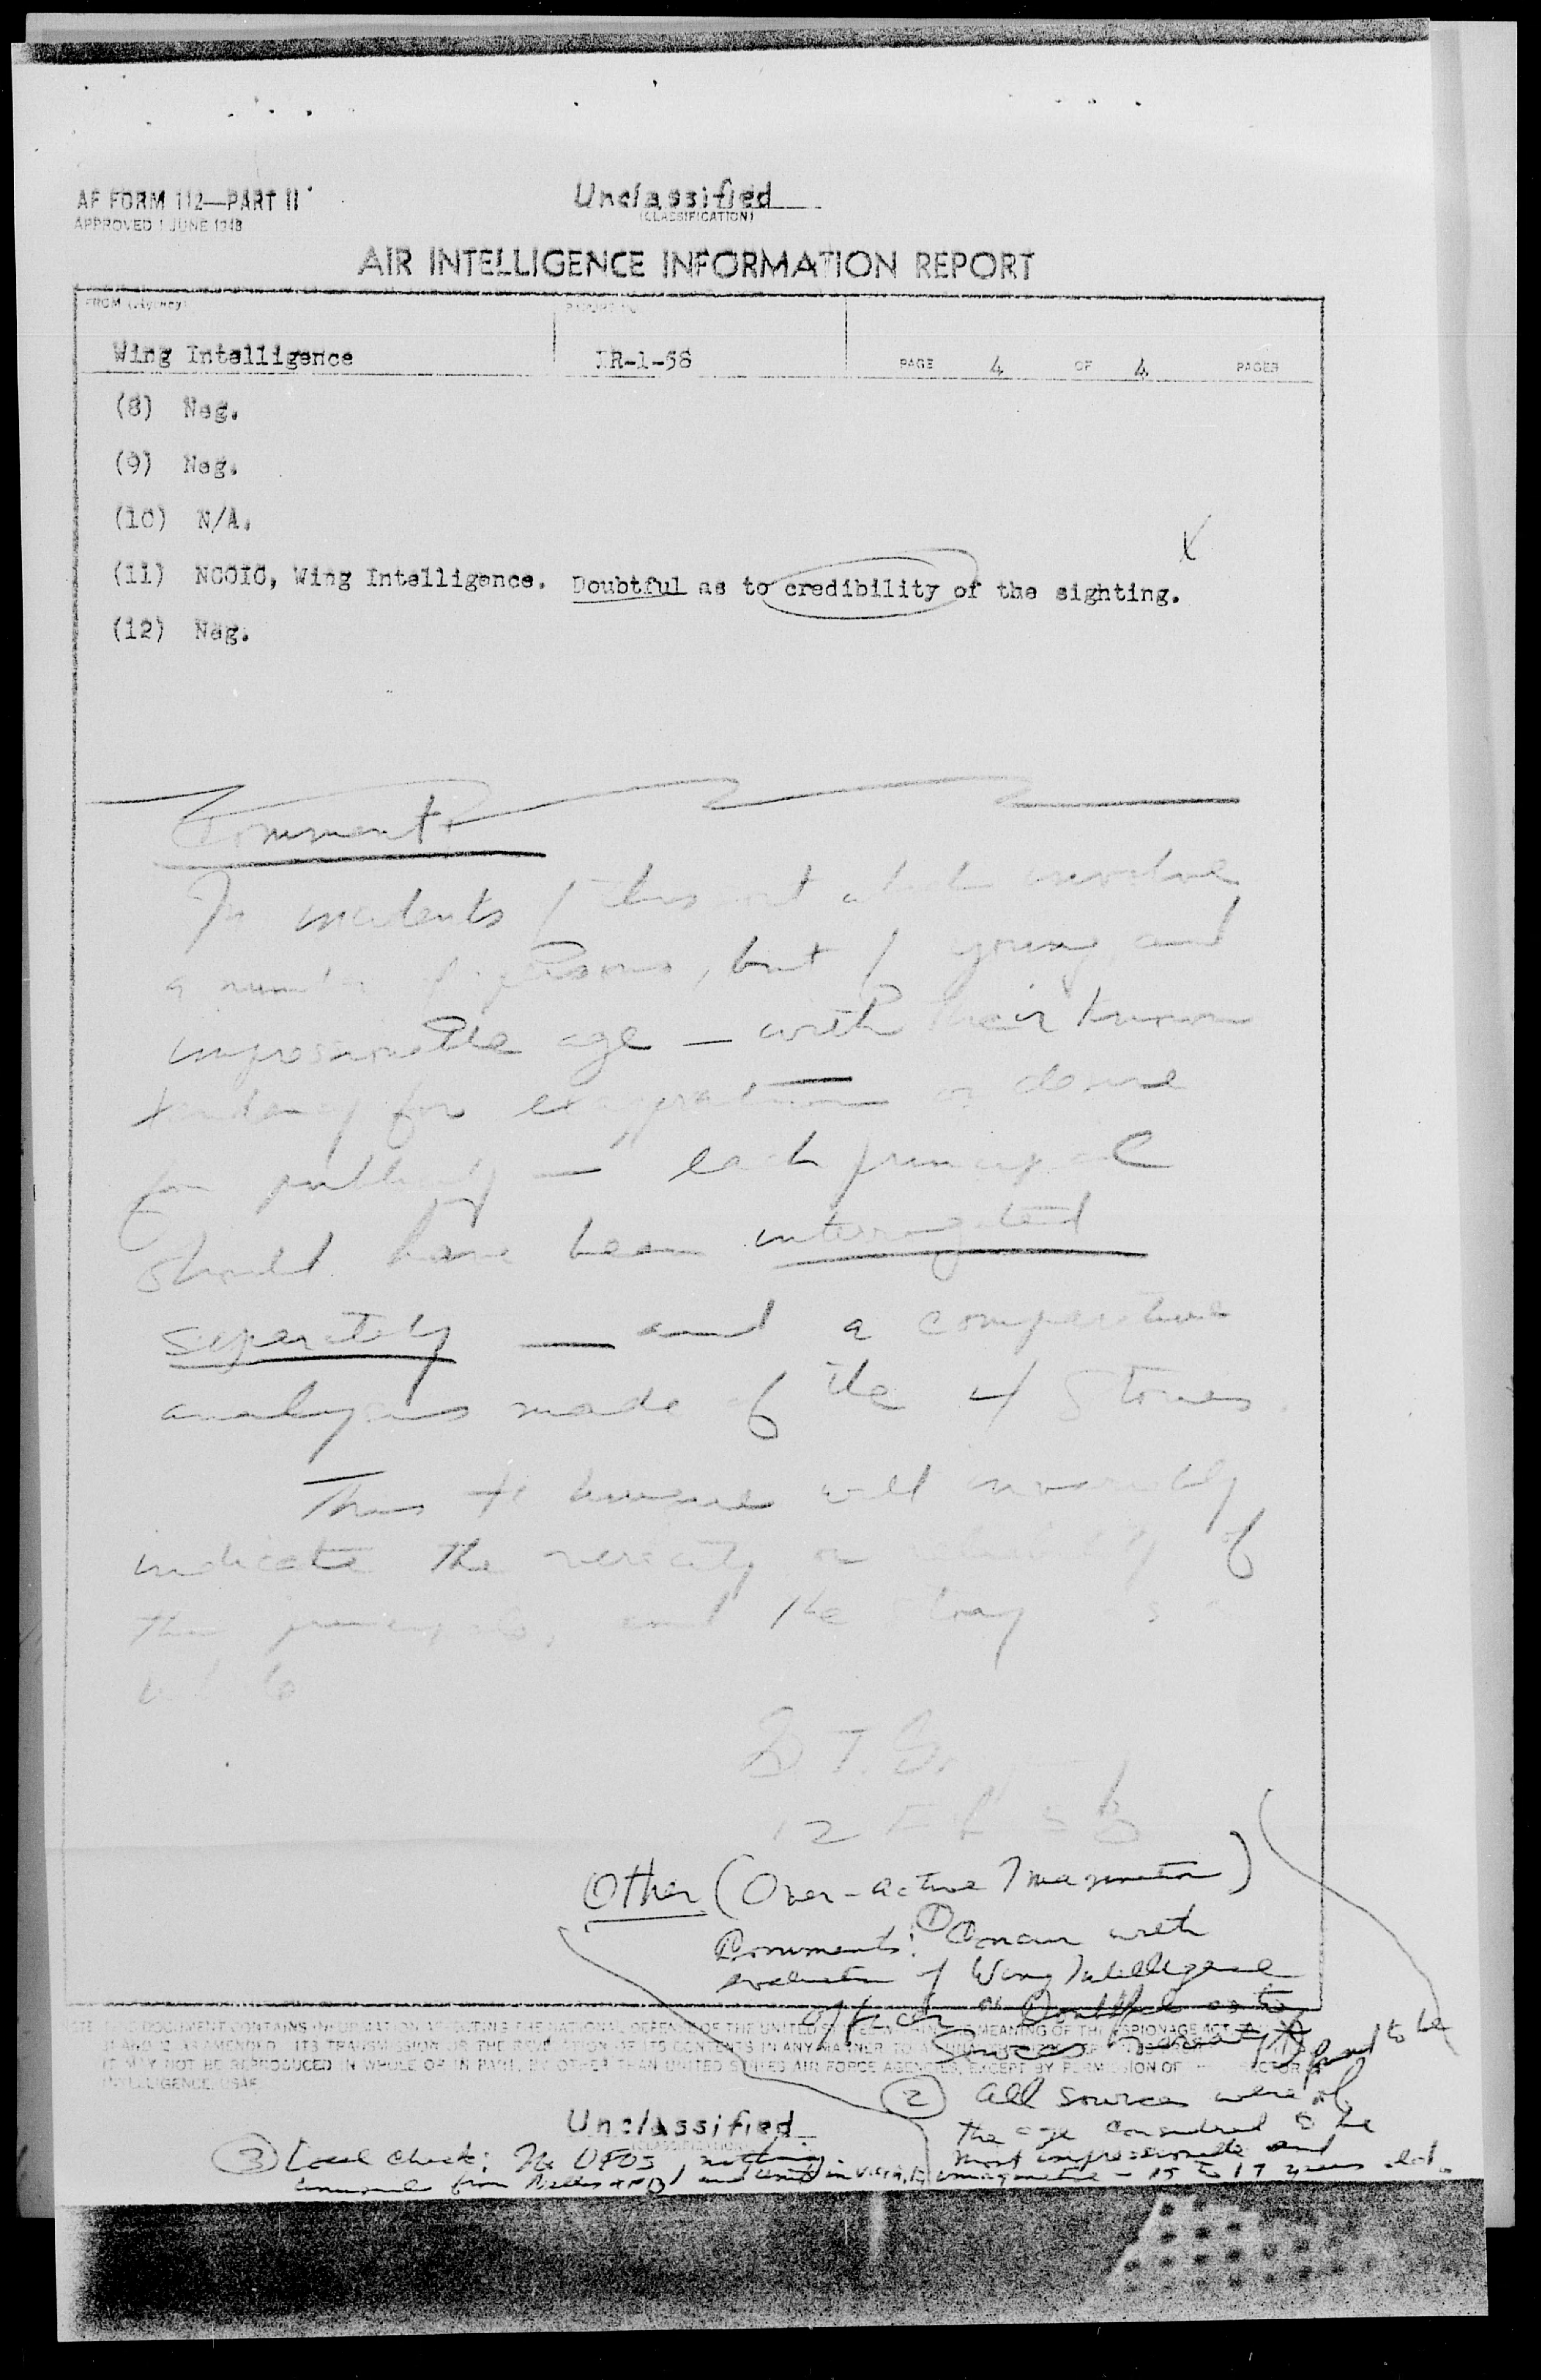 AF FORM 112—PART II
APPROVED 1 JUNE 1948
Unclassified
(CLASSIFICATION)
AIR INTELLIGENCE INFORMATION REPORT
FROM (Agency)
REPORT NO.
Wing Intelligence
IR-1-58
PAGE 4 OF 4 PAGES
(8) Neg.
(9) Neg.
(10) N/A.
(11) NCOIC, Wing Intelligence. Doubtful as to credibility of the sighting.
(12) Neg.
Comments
In incidents of this sort which involve
a number of persons, but of young and
impressionable age — with their known
tendency for exaggeration or desire
for publicity — each principal
should have been interrogated
seperately — and a comparative
analysis made of the 4 stories.
This technique will invariably
indicate the veracity or reliability of
the principals, and the story as a
whole
12 Feb 58
Other (Over-active Imagination)
Comments: ① Concur with
evaluation of Wing Intelligence
officer or Doubtful as to
sources
NOTE: THIS DOCUMENT CONTAINS INFORMATION AFFECTING THE NATIONAL DEFENSE OF THE UNITED STATES WITHIN THE MEANING OF THE ESPIONAGE ACT,
31 AND 32 AS AMENDED. ITS TRANSMISSION OR THE REVELATION OF ITS CONTENTS IN ANY MANNER TO AN
IT MAY NOT BE REPRODUCED IN WHOLE OR IN PART, BY OTHER THAN UNITED STATES AIR FORCE AGENCIES, EXCEPT BY PERMISSION OF
INTELLIGENCE, USAF
② All sources were of
the age considered to be
most impressionable and
imaginative - 15 to 17 years old.
Unclassified
(CLASSIFICATION)
③ Local check: No UFOs, nothing
unusual from Nellis AFB and